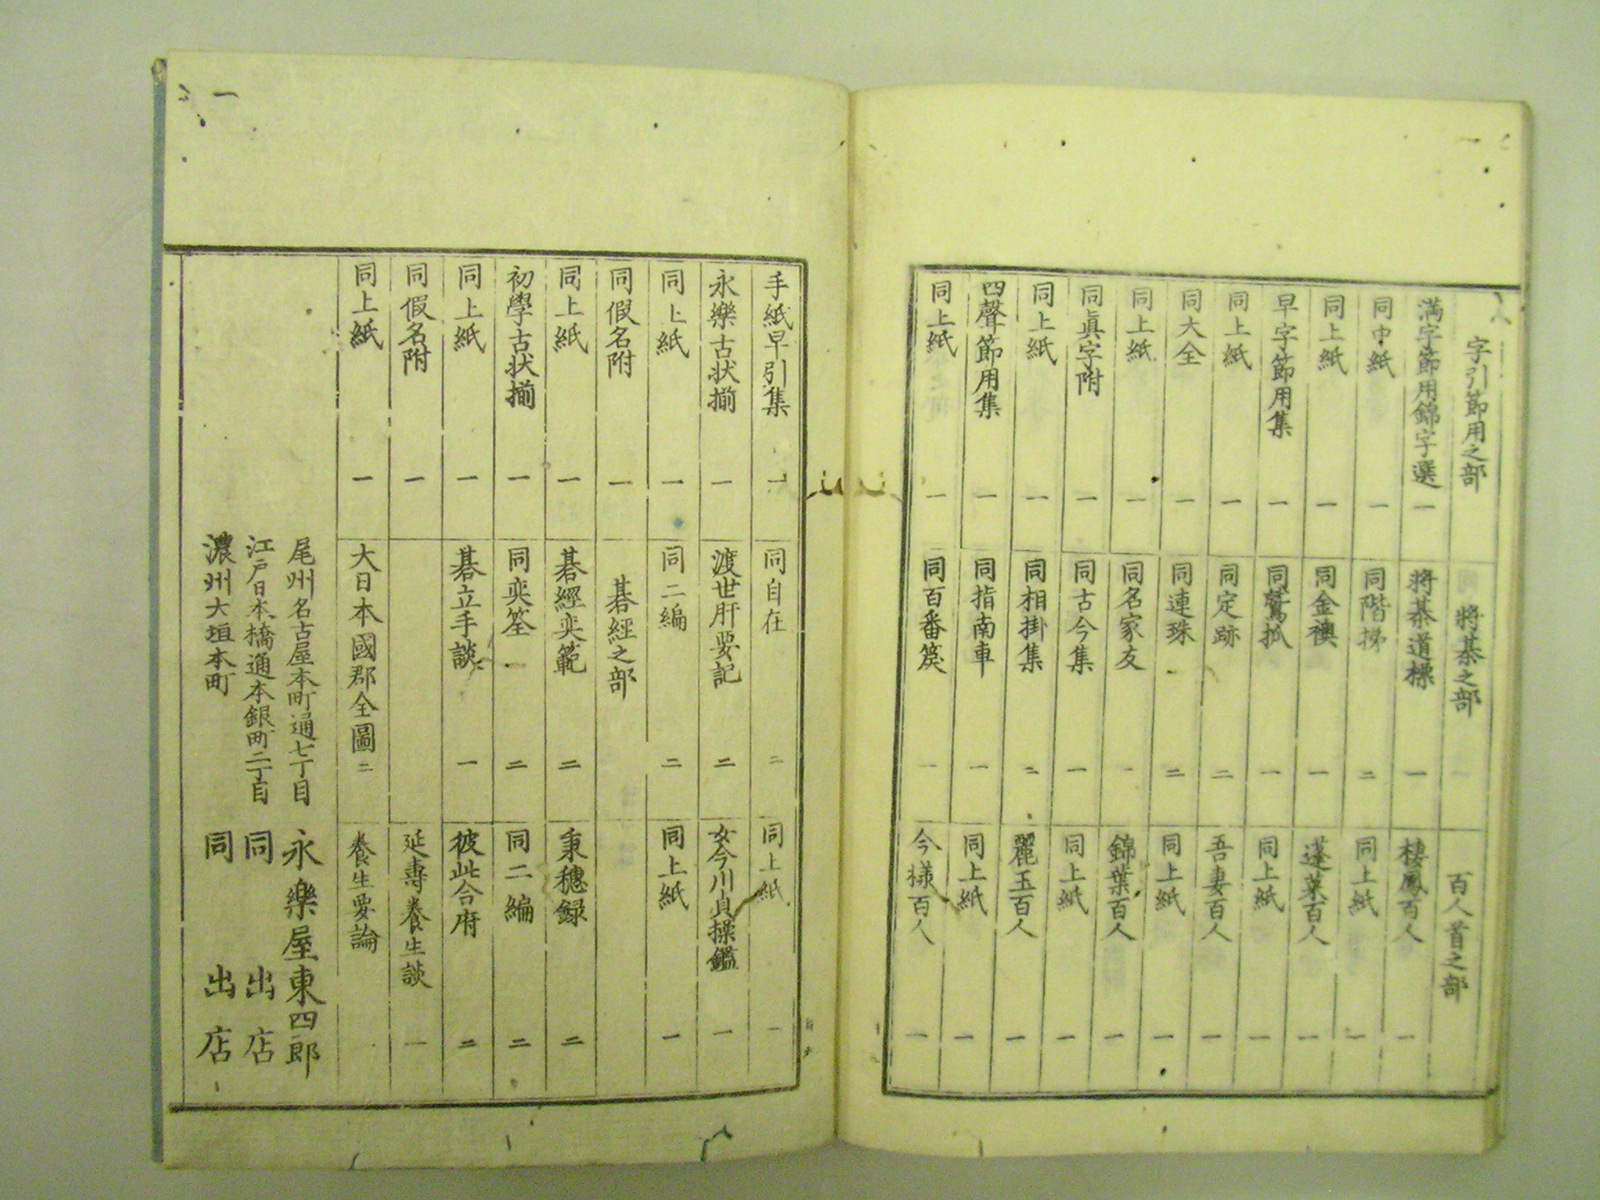 字引節用之部
満字節用錦字選 一
同中紙 一
同上紙 一
早字節用集 一
同上紙 一
同大全 一
同上紙 一
同眞字附 一
同上紙 一
四聲節用集 一
同上紙 一
將棊之部
將棊道標 一
同階梯 二
同金襖 一
同鷲抓 一
同定跡 二
同連珠 二
同名家友 一
同古今集 一
同相掛集 二
同指南車 一
同百番筴 一
百人首之部
棲鳳百人 一
同上紙 一
蓬莱百人 一
同上紙 一
吾妻百人 一
同上紙 一
錦葉百人 一
同上紙 一
麗玉百人 一
同上紙 一
今様百人 一
手紙早引集 一
永樂古状揃 一
同上紙 一
同假名附 一
同上紙 一
初學古状揃 一
同上紙 一
同假名附 一
同上紙 一
同自在 二
渡世肝要記 二
同二編 二
碁經之部
碁經奕範 二
同奕筌 二
碁立手談 一
大日本國郡全圖 二
同上紙 一
女今川貞操鑑 一
同上紙 一
秉穂録 二
同二編 二
彼此合府 二
延壽養生談 一
養生要論
尾州名古屋本町通七丁目 永樂屋東四郎
江戸日本橋通本銀町二丁目 同 出店
濃州大垣本町 同 出店